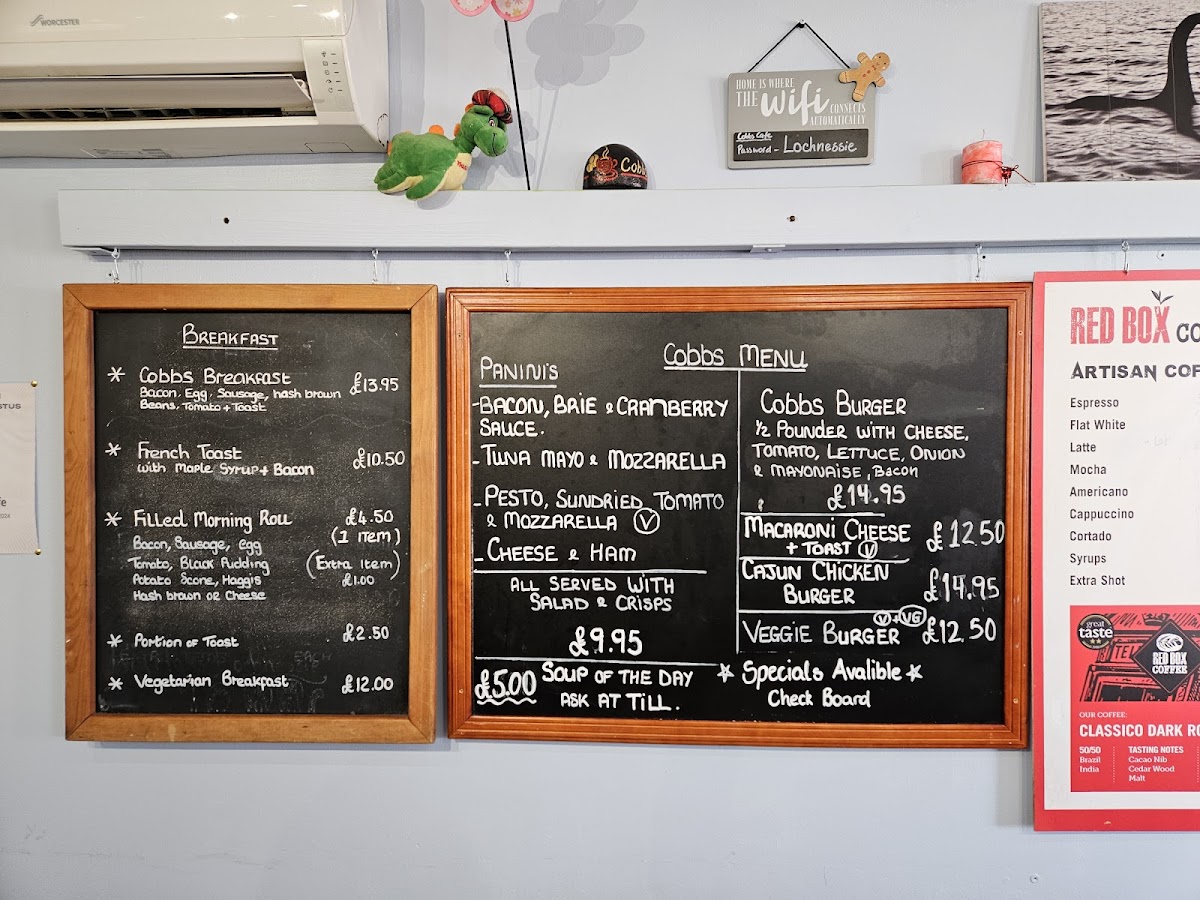 WORCESTER
HOME IS WHERE
THE wifi CONNECTS
AUTOMATICALLY
Cobbs Cafe
Password - Lochnessie
Cobb
BREAKFAST
* Cobbs Breakfast £13.95
Bacon, Egg, Sausage, hash brown
Beans, Tomato + Toast
* French Toast £10.50
with Maple Syrup + Bacon
* Filled Morning Roll £4.50
(1 item)
Bacon, Sausage, egg
Tomato, Black Pudding (Extra Item)
Potato Scone, Haggis £1.00
Hash brown or Cheese
* Portion of Toast £2.50
* Vegetarian Breakfast £12.00
COBBS MENU
PANINI'S
-BACON, BRIE & CRANBERRY
SAUCE.
- TUNA MAYO & MOZZARELLA
- PESTO, SUNDRIED TOMATO
& MOZZARELLA (V)
- CHEESE & HAM
ALL SERVED WITH
SALAD & CRISPS
£9.95
£5.00 SOUP OF THE DAY
ASK AT TILL.
COBBS BURGER
1/2 POUNDER WITH CHEESE,
TOMATO, LETTUCE, ONION
& MAYONAISE, BACON
£14.95
MACARONI CHEESE £12.50
+ TOAST (V)
CAJUN CHICKEN £14.95
BURGER
(V)+(VG)
VEGGIE BURGER £12.50
* Specials Avalible *
Check Board
RED BOX CO
ARTISAN COF
Espresso
Flat White
Latte
Mocha
Americano
Cappuccino
Cortado
Syrups
Extra Shot
great
taste
RED BOX
COFFEE
OUR COFFEE:
CLASSICO DARK RO
50/50
Brazil
India
TASTING NOTES
Cacao Nib
Cedar Wood
Malt